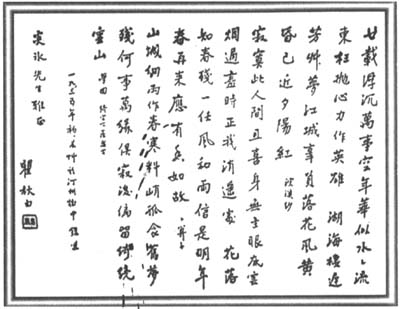 廿載浮沉萬事空年華似水水流
東枉拋心力作英雄 湖海棲遲
芳艸夢江城辜負落花風黃
昏已近夕陽紅 浣溪沙
寂寞此人間且喜身無主眼底雲
烟過盡時正我逍遙處 花落
知春殘一任風和雨信是明年
春再來應有香如故
山城細雨作春寒料峭孤衾舊夢
殘何事萬緣俱寂後偏留綺繞
雲山 夢回
一九三五年 汀州獄中
炎冰先生雅正
瞿秋白